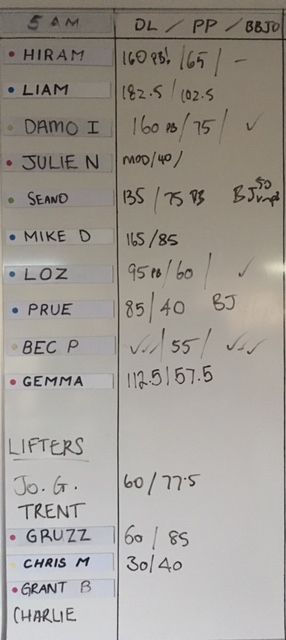 5 AM DL / PP / BBJO
HIRAM 160 PB! / 65 / -
LIAM 182.5 / 102.5
DAMO I 160 PB / 75 / ✓
JULIE N MOD / 40 /
SEANO 135 / 75 PB BJ 50 Jumps
MIKE D 165 / 85
LOZ 95 PB / 60 / ✓
PRUE 85 / 40 BJ
BEC P ✓✓✓ / 55 / ✓✓✓
GEMMA 112.5 / 57.5
LIFTERS
JO. G. 60 / 77.5
TRENT
GRUZZ 60 / 85
CHRIS M 30 / 40
GRANT B
CHARLIE